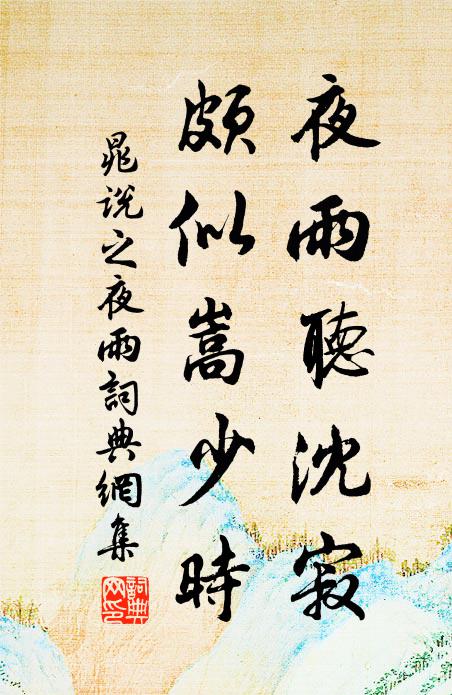 夜雨聽沈寂
頗似嵩少時
晁說之夜雨詞典網集
詞典網印